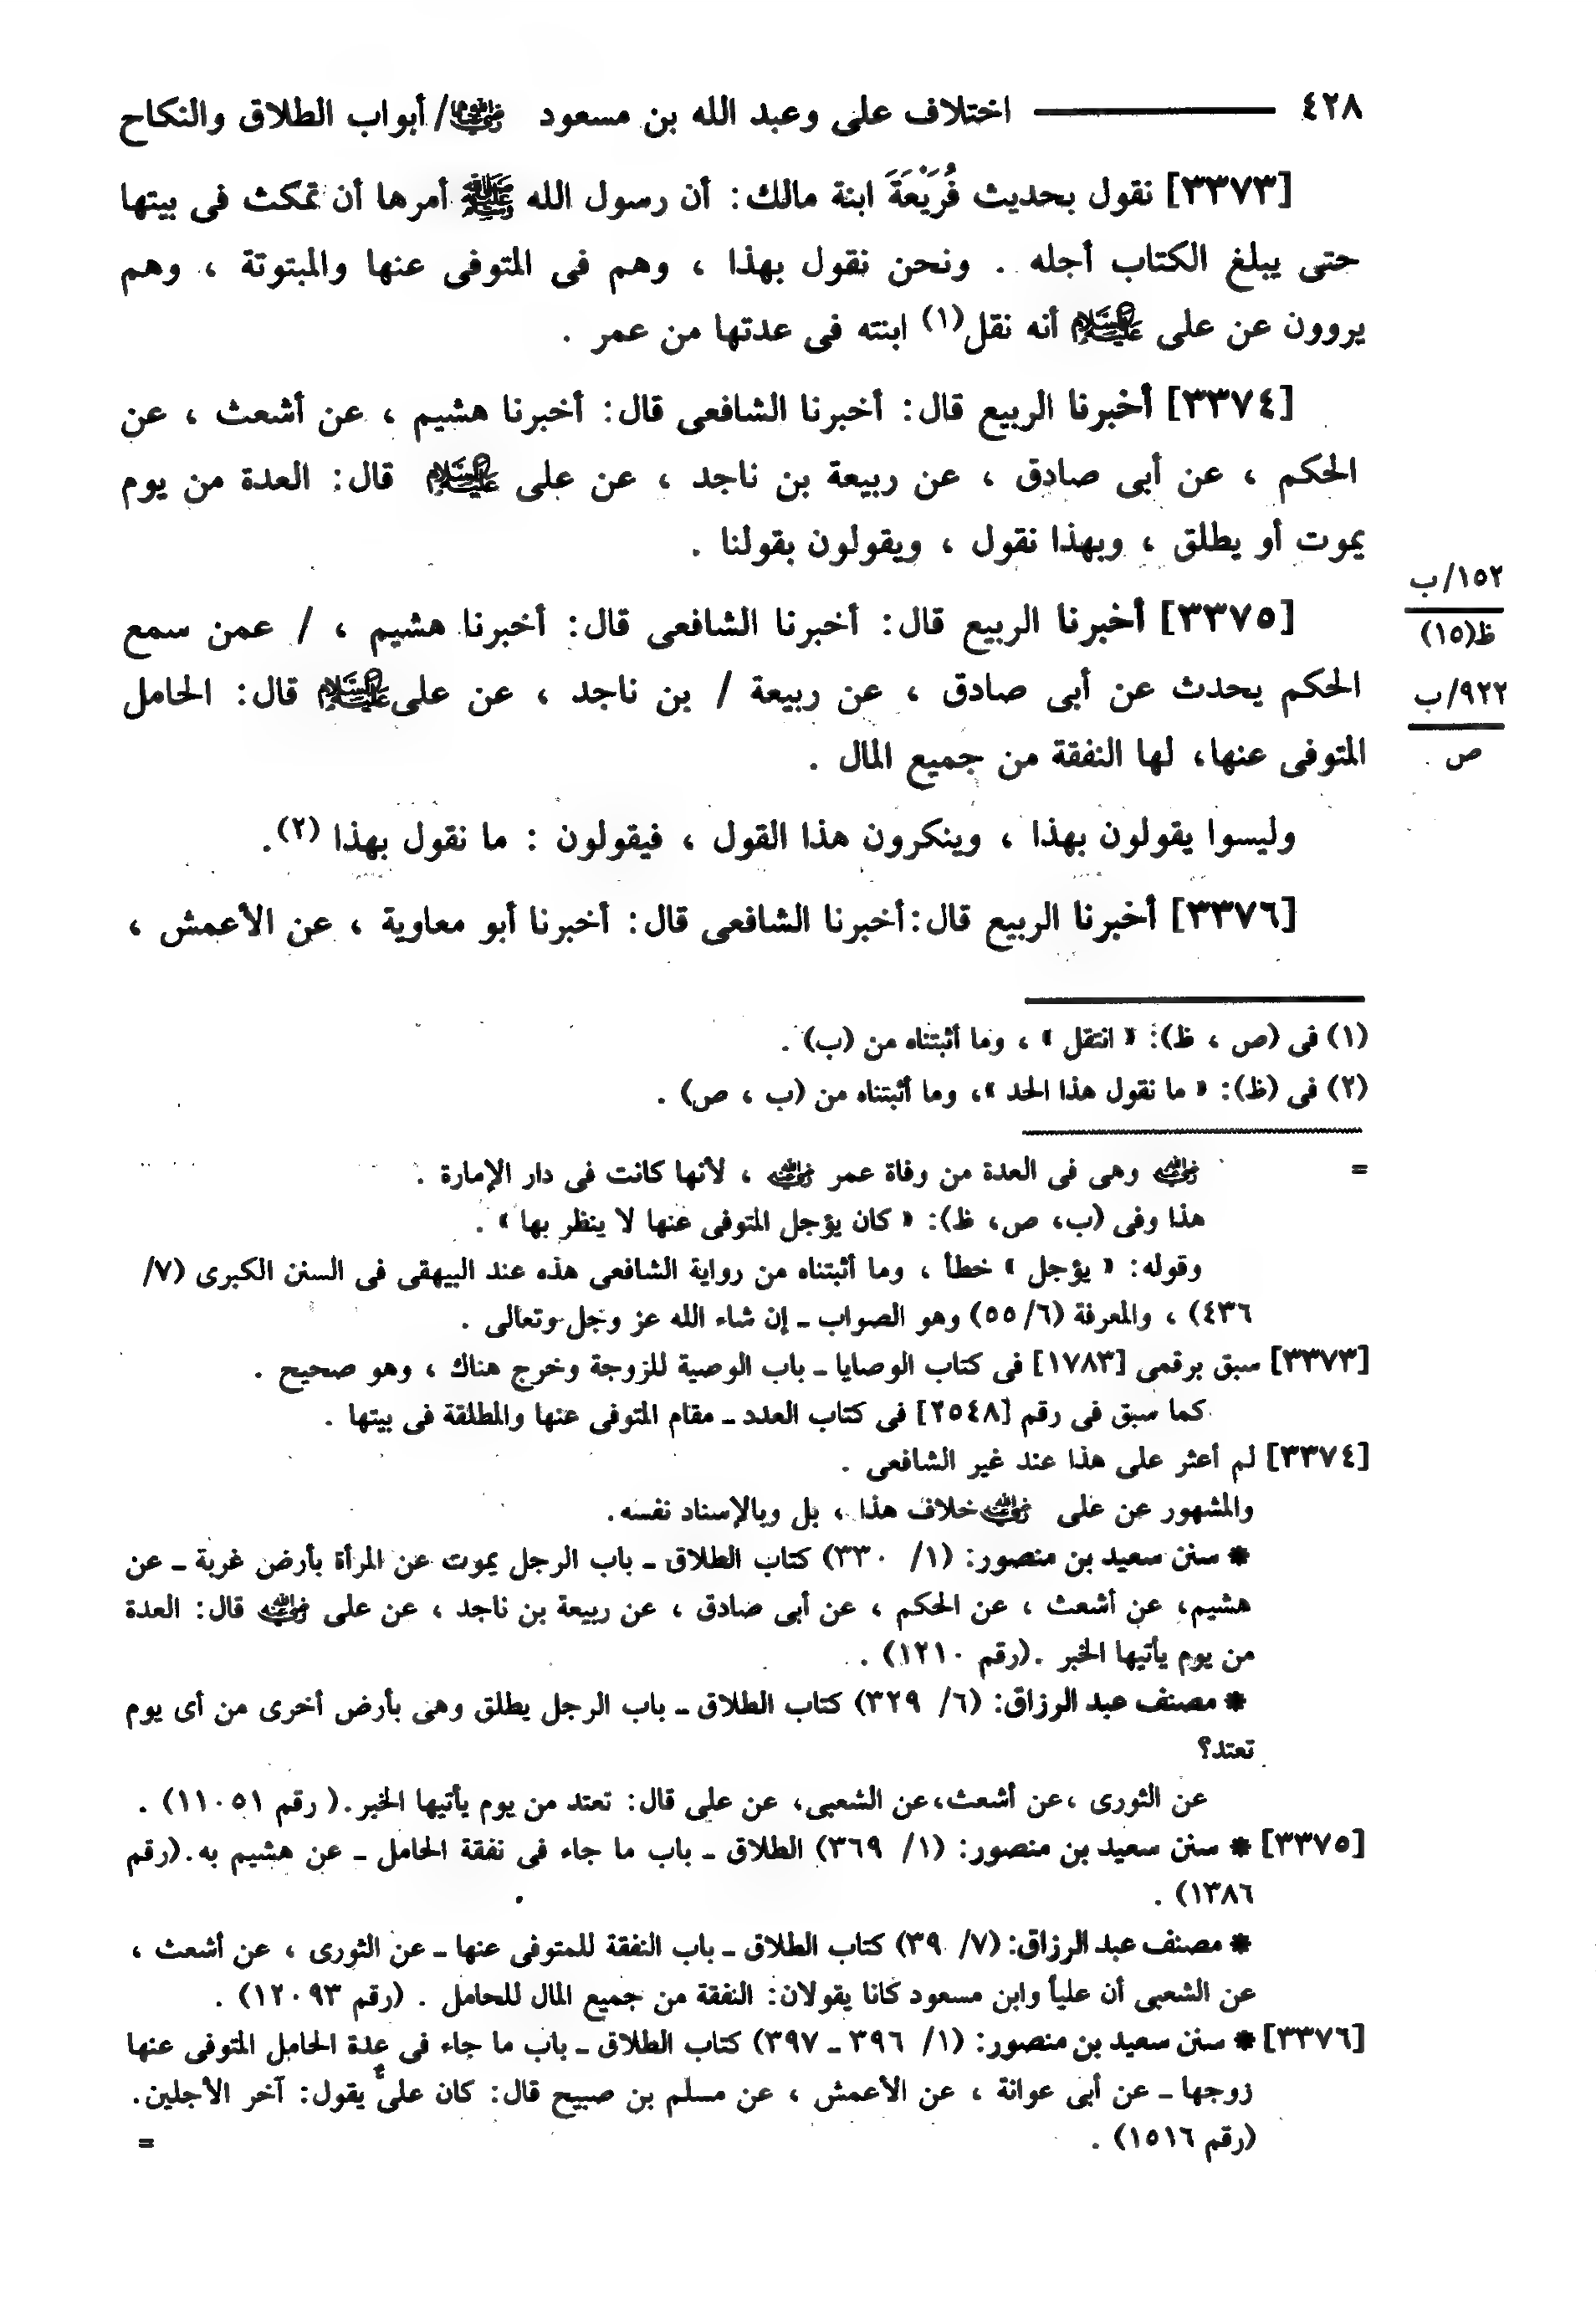 ٤٢٨ ـــــــ اختلاف على وعبد الله بن مسعود رضي الله عنهما/ أبواب الطلاق والنكاح
[٣٣٧٣] نقول بحديث فُرَيْعَةَ ابنة مالك: أن رسول الله ﷺ أمرها أن تمكث فى بيتها
حتى يبلغ الكتاب أجله . ونحن نقول بهذا ، وهم فى المتوفى عنها والمبتوتة ، وهم
يروون عن على عليه السلام أنه نقل(١) ابنته فى عدتها من عمر .
[٣٣٧٤] أخبرنا الربيع قال: أخبرنا الشافعى قال: أخبرنا هشيم ، عن أشعث ، عن
الحكم ، عن أبى صادق ، عن ربيعة بن ناجد ، عن على عليه السلام قال: العدة من يوم
يموت أو يطلق ، وبهذا نقول ، ويقولون بقولنا .
١٥٢/ب
ظ(١٥)
[٣٣٧٥] أخبرنا الربيع قال: أخبرنا الشافعى قال: أخبرنا هشيم ، / عمن سمع
٩٢٢/ب
ص
الحكم يحدث عن أبى صادق ، عن ربيعة / بن ناجد ، عن على عليه السلام قال: الحامل
المتوفى عنها، لها النفقة من جميع المال .
وليسوا يقولون بهذا ، وينكرون هذا القول ، فيقولون : ما نقول بهذا (٢).
[٣٣٧٦] أخبرنا الربيع قال:أخبرنا الشافعى قال: أخبرنا أبو معاوية ، عن الأعمش ،
(١) فى (ص ، ظ): « انتقل » ، وما أثبتناه من (ب) .
(٢) فى (ظ): « ما نقول هذا الحد »، وما أثبتناه من (ب ، ص) .
= رضي الله عنه وهى فى العدة من وفاة عمر رضي الله عنه ، لأنها كانت فى دار الإمارة .
هذا وفى (ب، ص، ظ): « كان يؤجل المتوفى عنها لا ينظر بها » .
وقوله: « يؤجل » خطأ ، وما أثبتناه من رواية الشافعى هذه عند البيهقى فى السنن الكبرى (٧/
٤٣٦) ، والمعرفة (٦/ ٥٥) وهو الصواب ـ إن شاء الله عز وجل وتعالى .
[٣٣٧٣] سبق برقمى [١٧٨٣] فى كتاب الوصايا ـ باب الوصية للزوجة وخرج هناك ، وهو صحيح .
كما سبق فى رقم [٢٥٤٨] فى كتاب العدد ـ مقام المتوفى عنها والمطلقة فى بيتها .
[٣٣٧٤] لم أعثر على هذا عند غير الشافعى .
والمشهور عن على رضي الله عنه خلاف هذا ، بل وبالإسناد نفسه.
* سنن سعيد بن منصور: (١/ ٣٣٠) كتاب الطلاق ـ باب الرجل يموت عن المرأة بأرض غربة ـ عن
هشيم، عن أشعث ، عن الحكم ، عن أبى صادق ، عن ربيعة بن ناجد ، عن على رضي الله عنه قال: العدة
من يوم يأتيها الخبر .(رقم ١٢١٠) .
* مصنف عبد الرزاق: (٦/ ٣٢٩) كتاب الطلاق ـ باب الرجل يطلق وهى بأرض أخرى من أى يوم
تعتد؟
عن الثورى ،عن أشعث،عن الشعبى، عن على قال: تعتد من يوم يأتيها الخبر.( رقم ١١٠٥١) .
[٣٣٧٥] * سنن سعيد بن منصور: (١/ ٣٦٩) الطلاق ـ باب ما جاء فى نفقة الحامل ـ عن هشيم به.(رقم
١٣٨٦) .
* مصنف عبد الرزاق: (٧/ ٣٩) كتاب الطلاق ـ باب النفقة للمتوفى عنها ـ عن الثورى ، عن أشعث ،
عن الشعبى أن علياً وابن مسعود كانا يقولان: النفقة من جميع المال للحامل . (رقم ١٢٠٩٣) .
[٣٣٧٦] * سنن سعيد بن منصور: (١/ ٣٩٦ ـ ٣٩٧) كتاب الطلاق ـ باب ما جاء فى عدة الحامل المتوفى عنها
زوجها ـ عن أبى عوانة ، عن الأعمش ، عن مسلم بن صبيح قال: كان علىٌّ يقول: آخر الأجلين.
(رقم ١٥١٦) . =